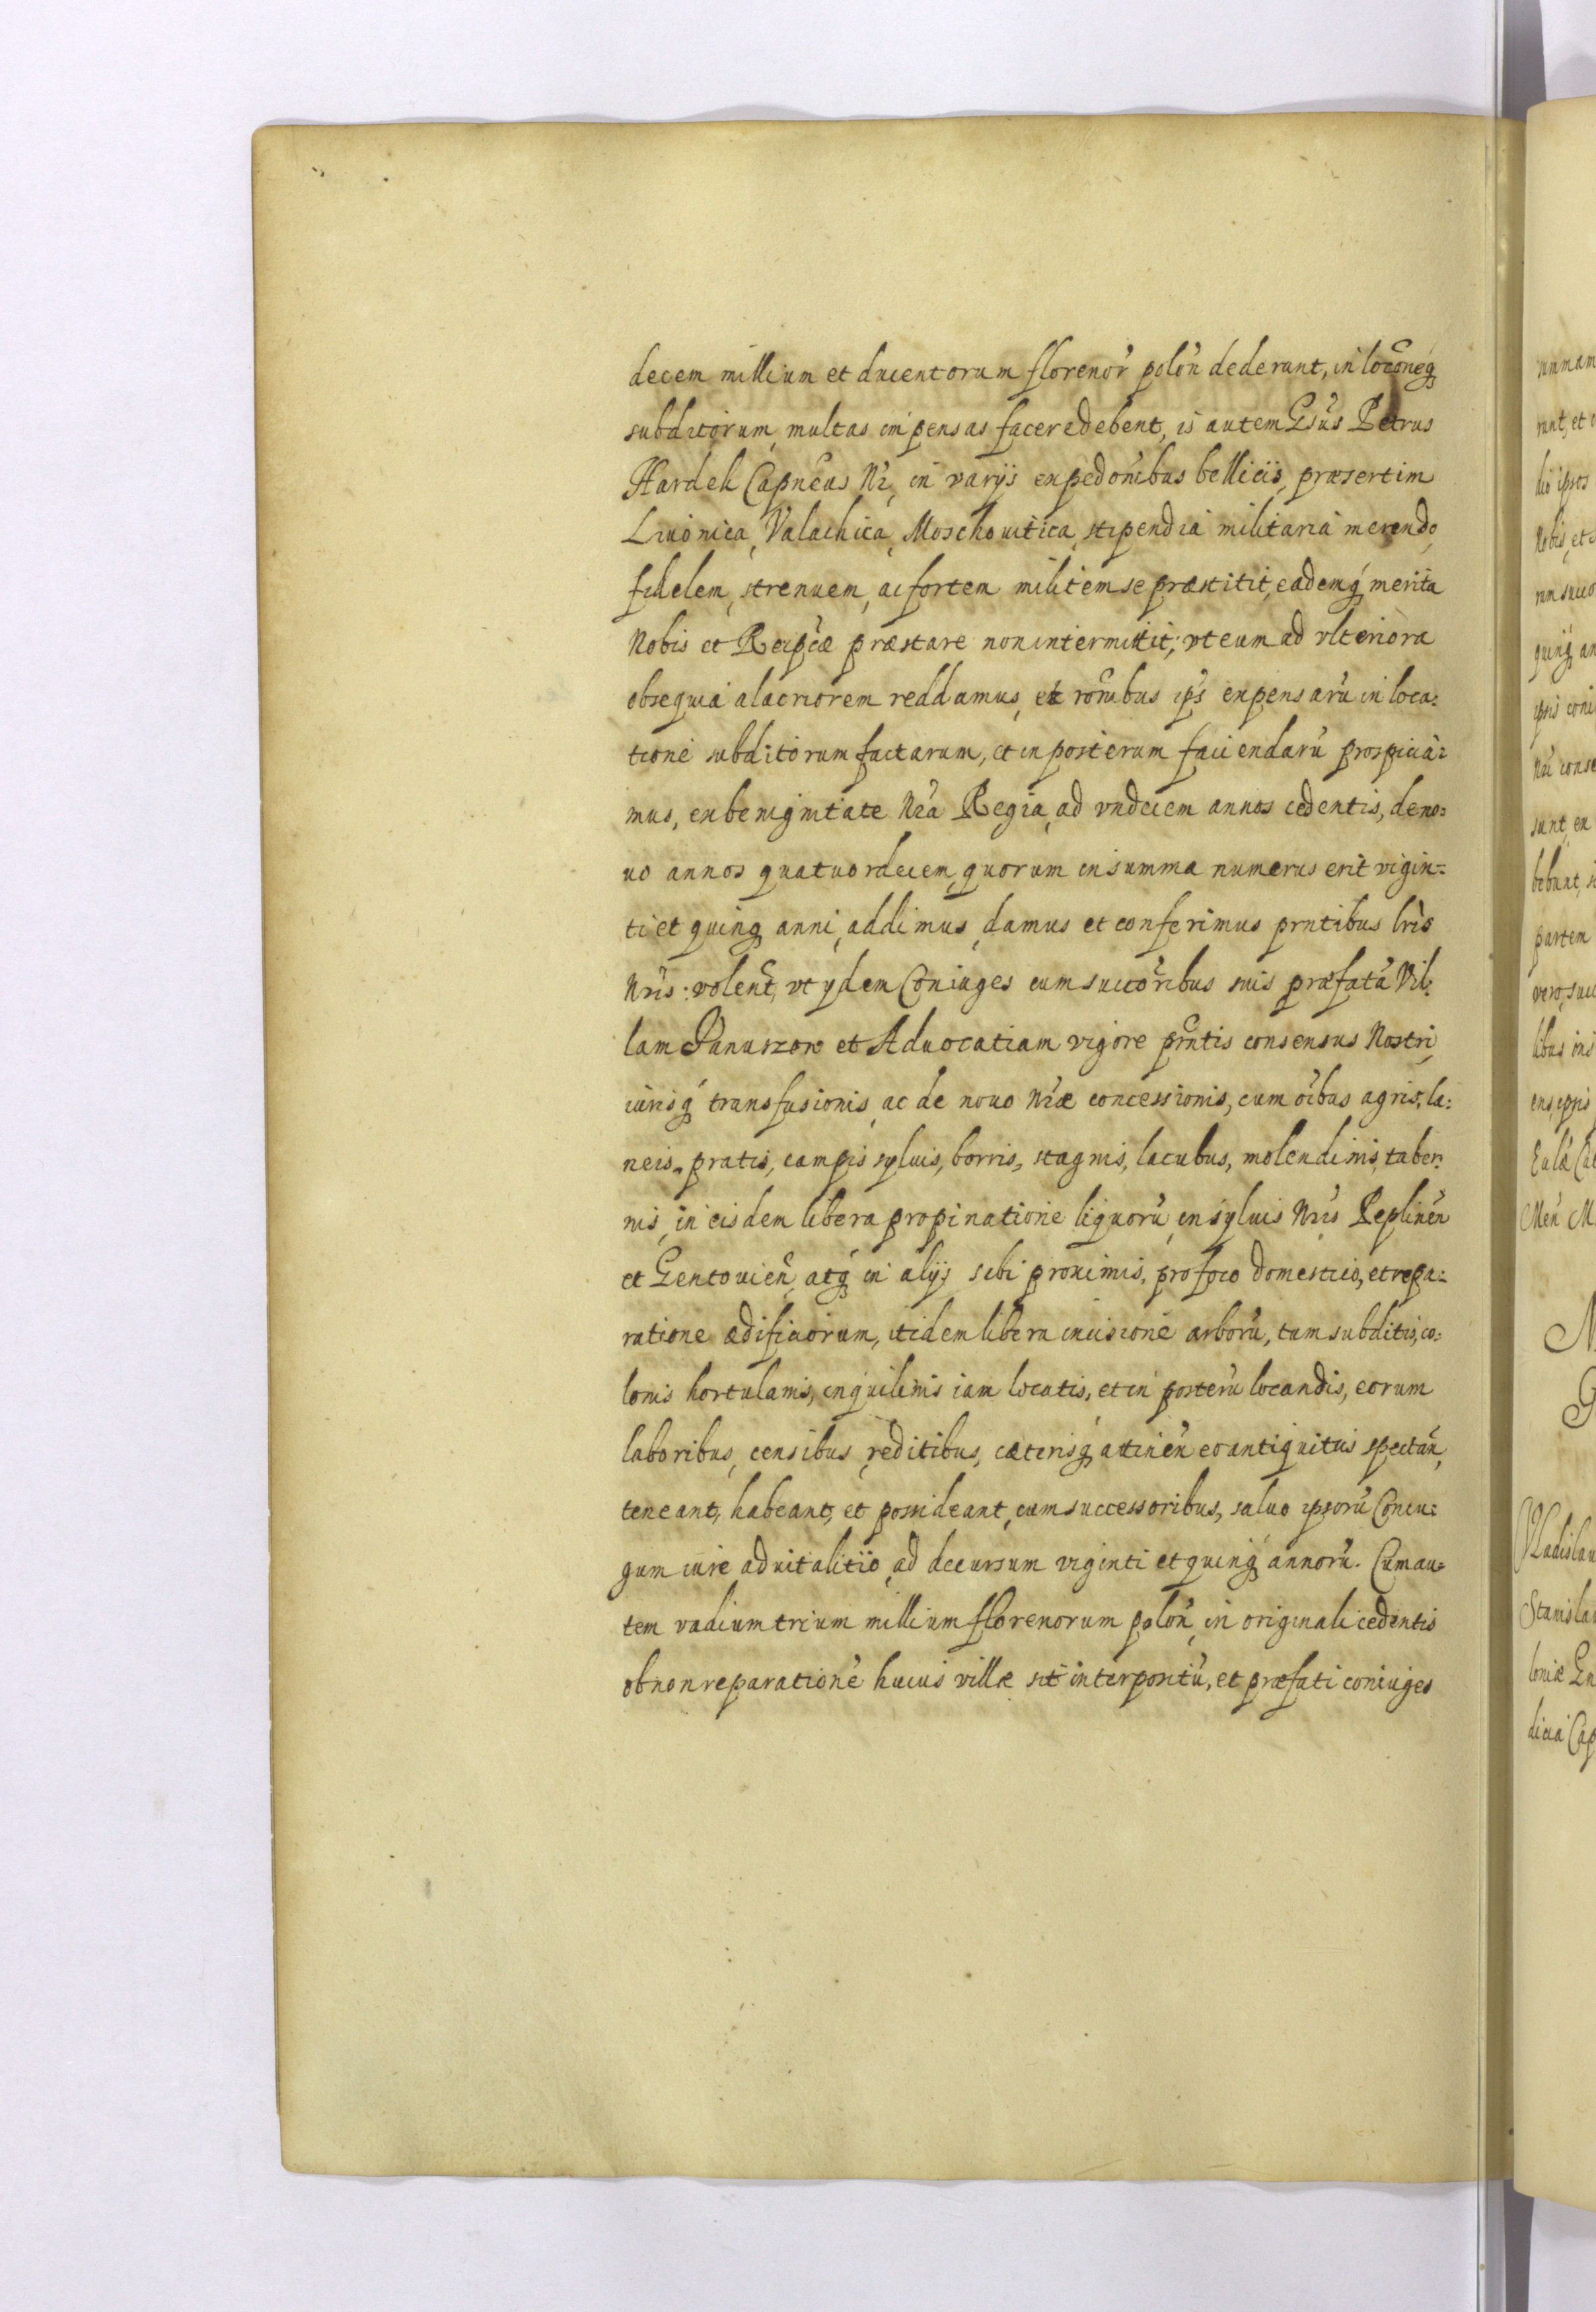 decem millium et ducentorum florenor̃ polon̄ dederunt, in locõneq́
subditorum, multas impensas facere debent, is autem Gsūs Petrus
Hardek Capnēus Nr̄, in varijs expedōnibus bellicis, præsertim
Liuonica, Valachica, Moschouitica, stipendia militaria merendo,
fidelem, strenuem, ac fortem militem se præstitit, eademq́ merita
Nobis et Reipcæ præstare non intermittit; vt eum ad vlteriora
obsequia alacriorem reddamus, et rōnibus ips̄ expensarū in loca:
tione subditorum factarum, et in posterum faciendarū prospicia:
mus, ex benignitate Nr̄a Regia, ad vndecem annos cedentis, deno:
uo annos quatuordecem, quorum in summa numerus erit vigin:
ti et quinq́ anni, addimus, damus et conferimus prntibus lris
Nris: volent̄, vt ydem Coniuges cum succōribus suis præfatā Vil:
lam Panuszow et Aduocatiam vigore prntis consensus Nostri,
iurisq́ transfusionis, ac de nouo Nr̄æ concessionis, cum oībus agris, la:
neis, pratis, campis syluis, borris, stagnis, lacubus, molendinis, taber:
nis, in eisdem libera propinatione liquorū, in syluis Nris Peplinēn
et Gentouien̄, atq́ in alijs sibi proximis, pro foco domestico, et repa:
ratione ædificiorum, itidem libera incisione arborū, tum subditis, co:
lonis hortulanis, inquilinis iam locatis, et in posterū locandis, eorum
laboribus, censibus, reditibus, cæterisq́ attinēn eo antiquitus spectān,
teneant, habeant, et possideant, cum successoribus, saluo ipsorū Coniu:
gum iure aduitalitio, ad decursum viginti et quinq́ annorū. Cum au:
tem vadium trium millium florenorum polon̄, in originali cedentis
ob non reparationē huius villæ sit interpositū, et præfati coniuges